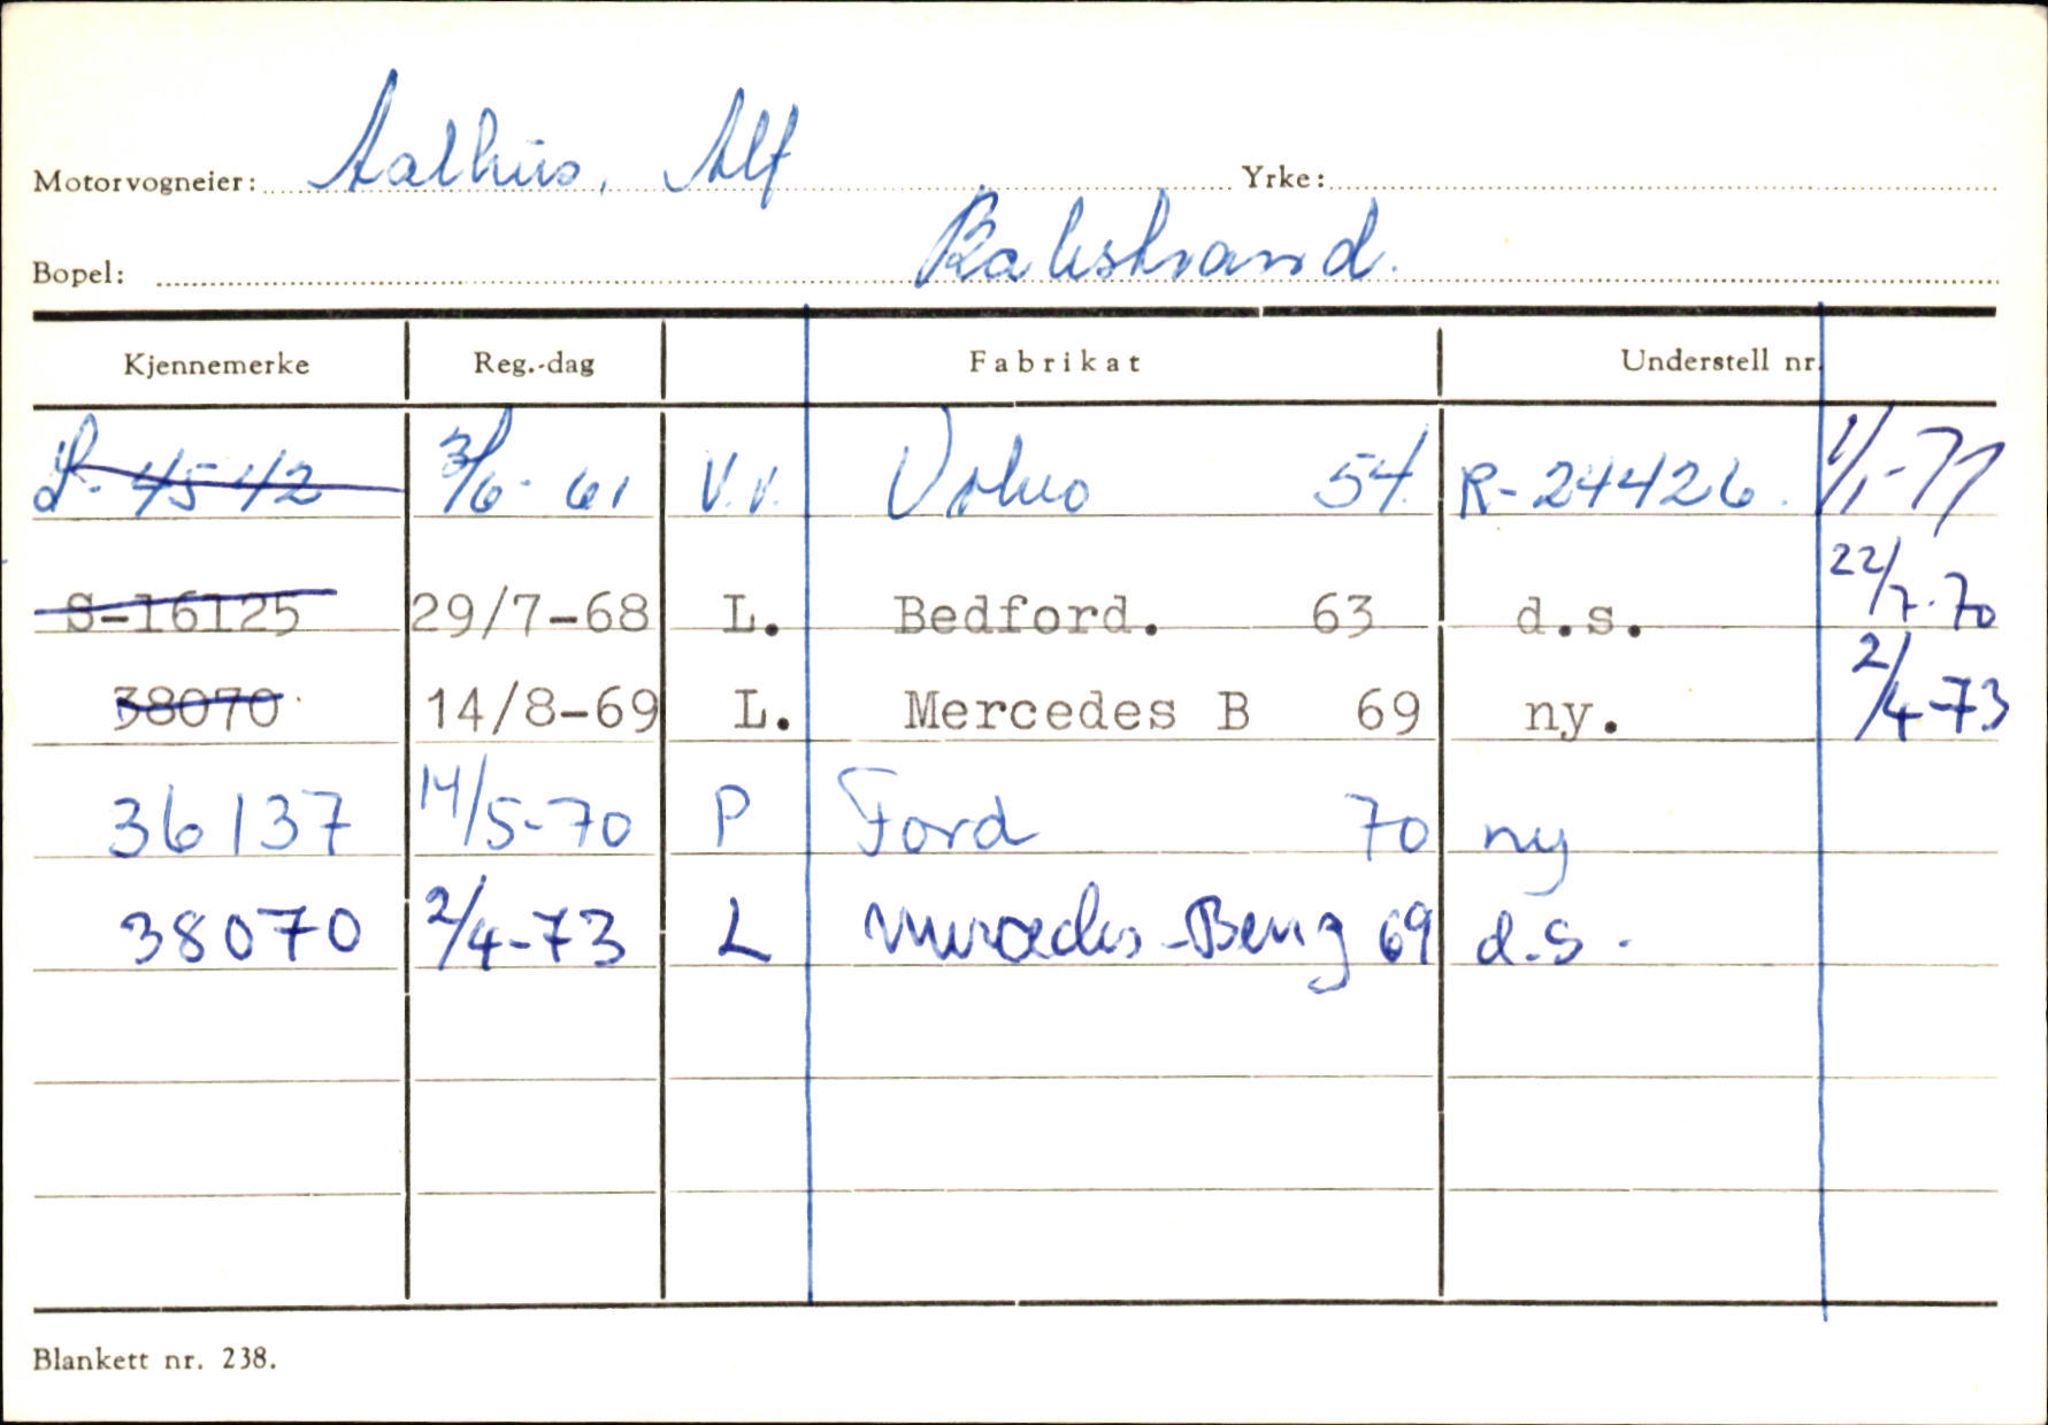 Motorvogneier: Aalhus, Alf Yrke:
Bopel: Balestrand.
Kjennemerke Reg.-dag Fabrikat Understell nr.
S-4542 3/6-61 V.v. Volvo 54. R-24426. 1/1-77
S-16125 29/7-68 L. Bedford. 63 d.s. 22/7-70
38070 14/8-69 L. Mercedes B 69 ny. 2/4-73
36137 14/5-70 P Ford 70 ny
38070 2/4-73 L Mercedes-Benz 69 d.s.
Blankett nr. 238.